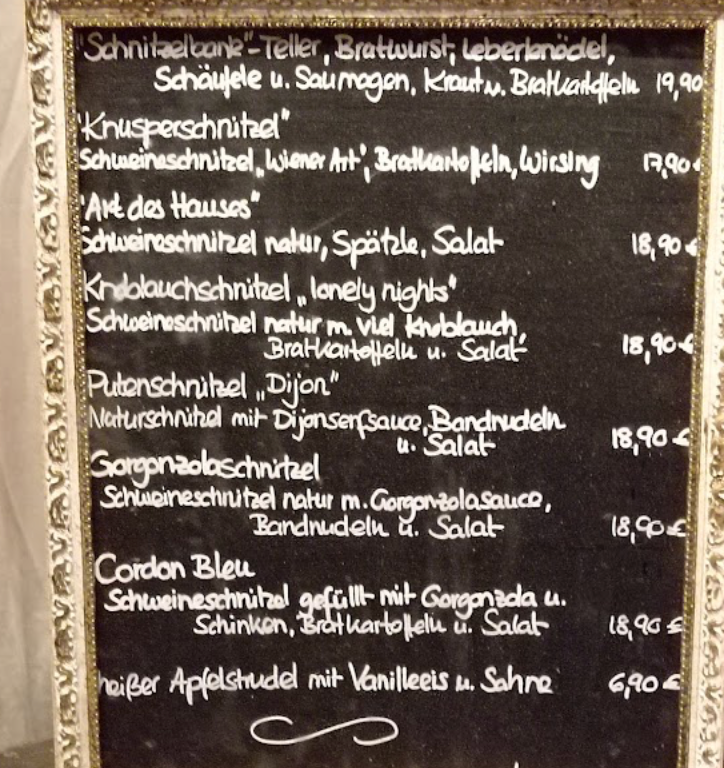 "Schnitzelbank"-Teller, Bratwurst, Leberknödel,
Schäufele u. Saumagen, Kraut u. Bratkartoffeln 19,90
"Knusperschnitzel"
Schweineschnitzel „Wiener Art", Bratkartoffeln, Wirsing 17,90€
"Art des Hauses"
Schweineschnitzel natur, Spätzle, Salat 18,90€
Knoblauchschnitzel „lonely nights"
Schweineschnitzel natur m. viel Knoblauch,
Bratkartoffeln u. Salat 18,90€
Putenschnitzel „Dijon"
Naturschnitzel mit Dijonsenfsauce, Bandnudeln
u. Salat 18,90€
Gorgonzolaschnitzel
Schweineschnitzel natur m. Gorgonzolasauce,
Bandnudeln u. Salat 18,90€
Cordon Bleu
Schweineschnitzel gefüllt mit Gorgonzola u.
Schinken, Bratkartoffeln u. Salat 18,90€
heißer Apfelstrudel mit Vanilleeis u. Sahne 6,90€